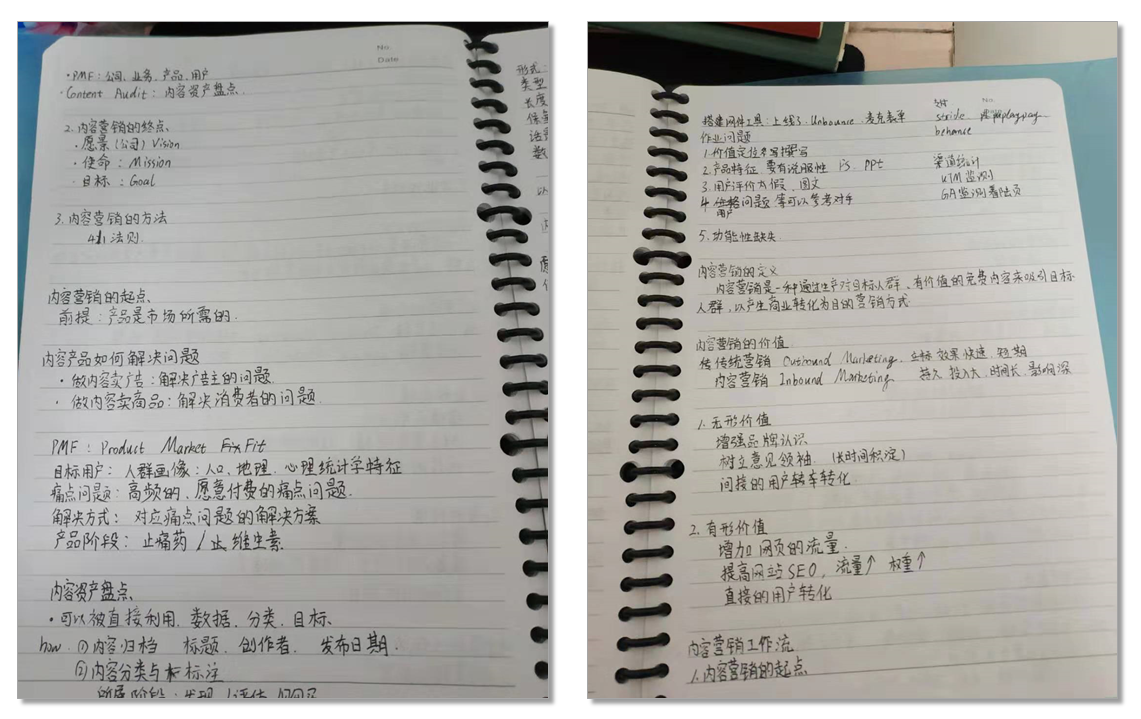 No.
Date
·PMF：公司、业务、产品、用户
·Content Audit：内容资产盘点.
2.内容营销的终点、
·愿景（公司）Vision
·使命：Mission
·目标：Goal
3.内容营销的方法
法则.
内容营销的起点、
前提：产品是市场所需的.
内容产品如何解决问题
·做内容卖广告：解决广告主的问题.
·做内容卖商品：解决消费者的问题.
PMF：Product Market Fit
目标用户：人群画像：人口、地理、心理统计学特征
痛点问题：高频的、愿意付费的痛点问题.
解决方式：对应痛点问题的解决方案
产品阶段：止痛药/维生素
内容资产盘点、
·可以被直接利用.数据.分类.目标.
how.①内容归档 标题.创作者.发布日期.
②内容分类与标注
所属阶段：发现/评估
形式：
类型
长度
No.
搭建网件工具：上线了、Unbounce、麦克表单
stride
作业问题
behance
1.价值定位撰写
2.产品特征.要有说服性 PS、PPT
渠道统计
3.用户评价太假.图文
UTM监测
4.价格问题等可以参考对手
用户
GA监测着陆页
5.功能性缺失.
内容营销的定义
内容营销是一种通过生产对目标人群、有价值的免费内容来吸引目标
人群，以产生商业转化为目的营销方式.
内容营销的价值
传统营销 Outbound Marketing、效果快速.短期
内容营销 Inbound Marketing 持久 投入大、时间长、影响深
1.无形价值
增强品牌认识
树立意见领袖.（长时间积淀）
间接的用户转化.
2.有形价值
增加网页的流量.
提高网站SEO，流量↑ 权重↑
直接的用户转化
内容营销工作流
1.内容营销的起点